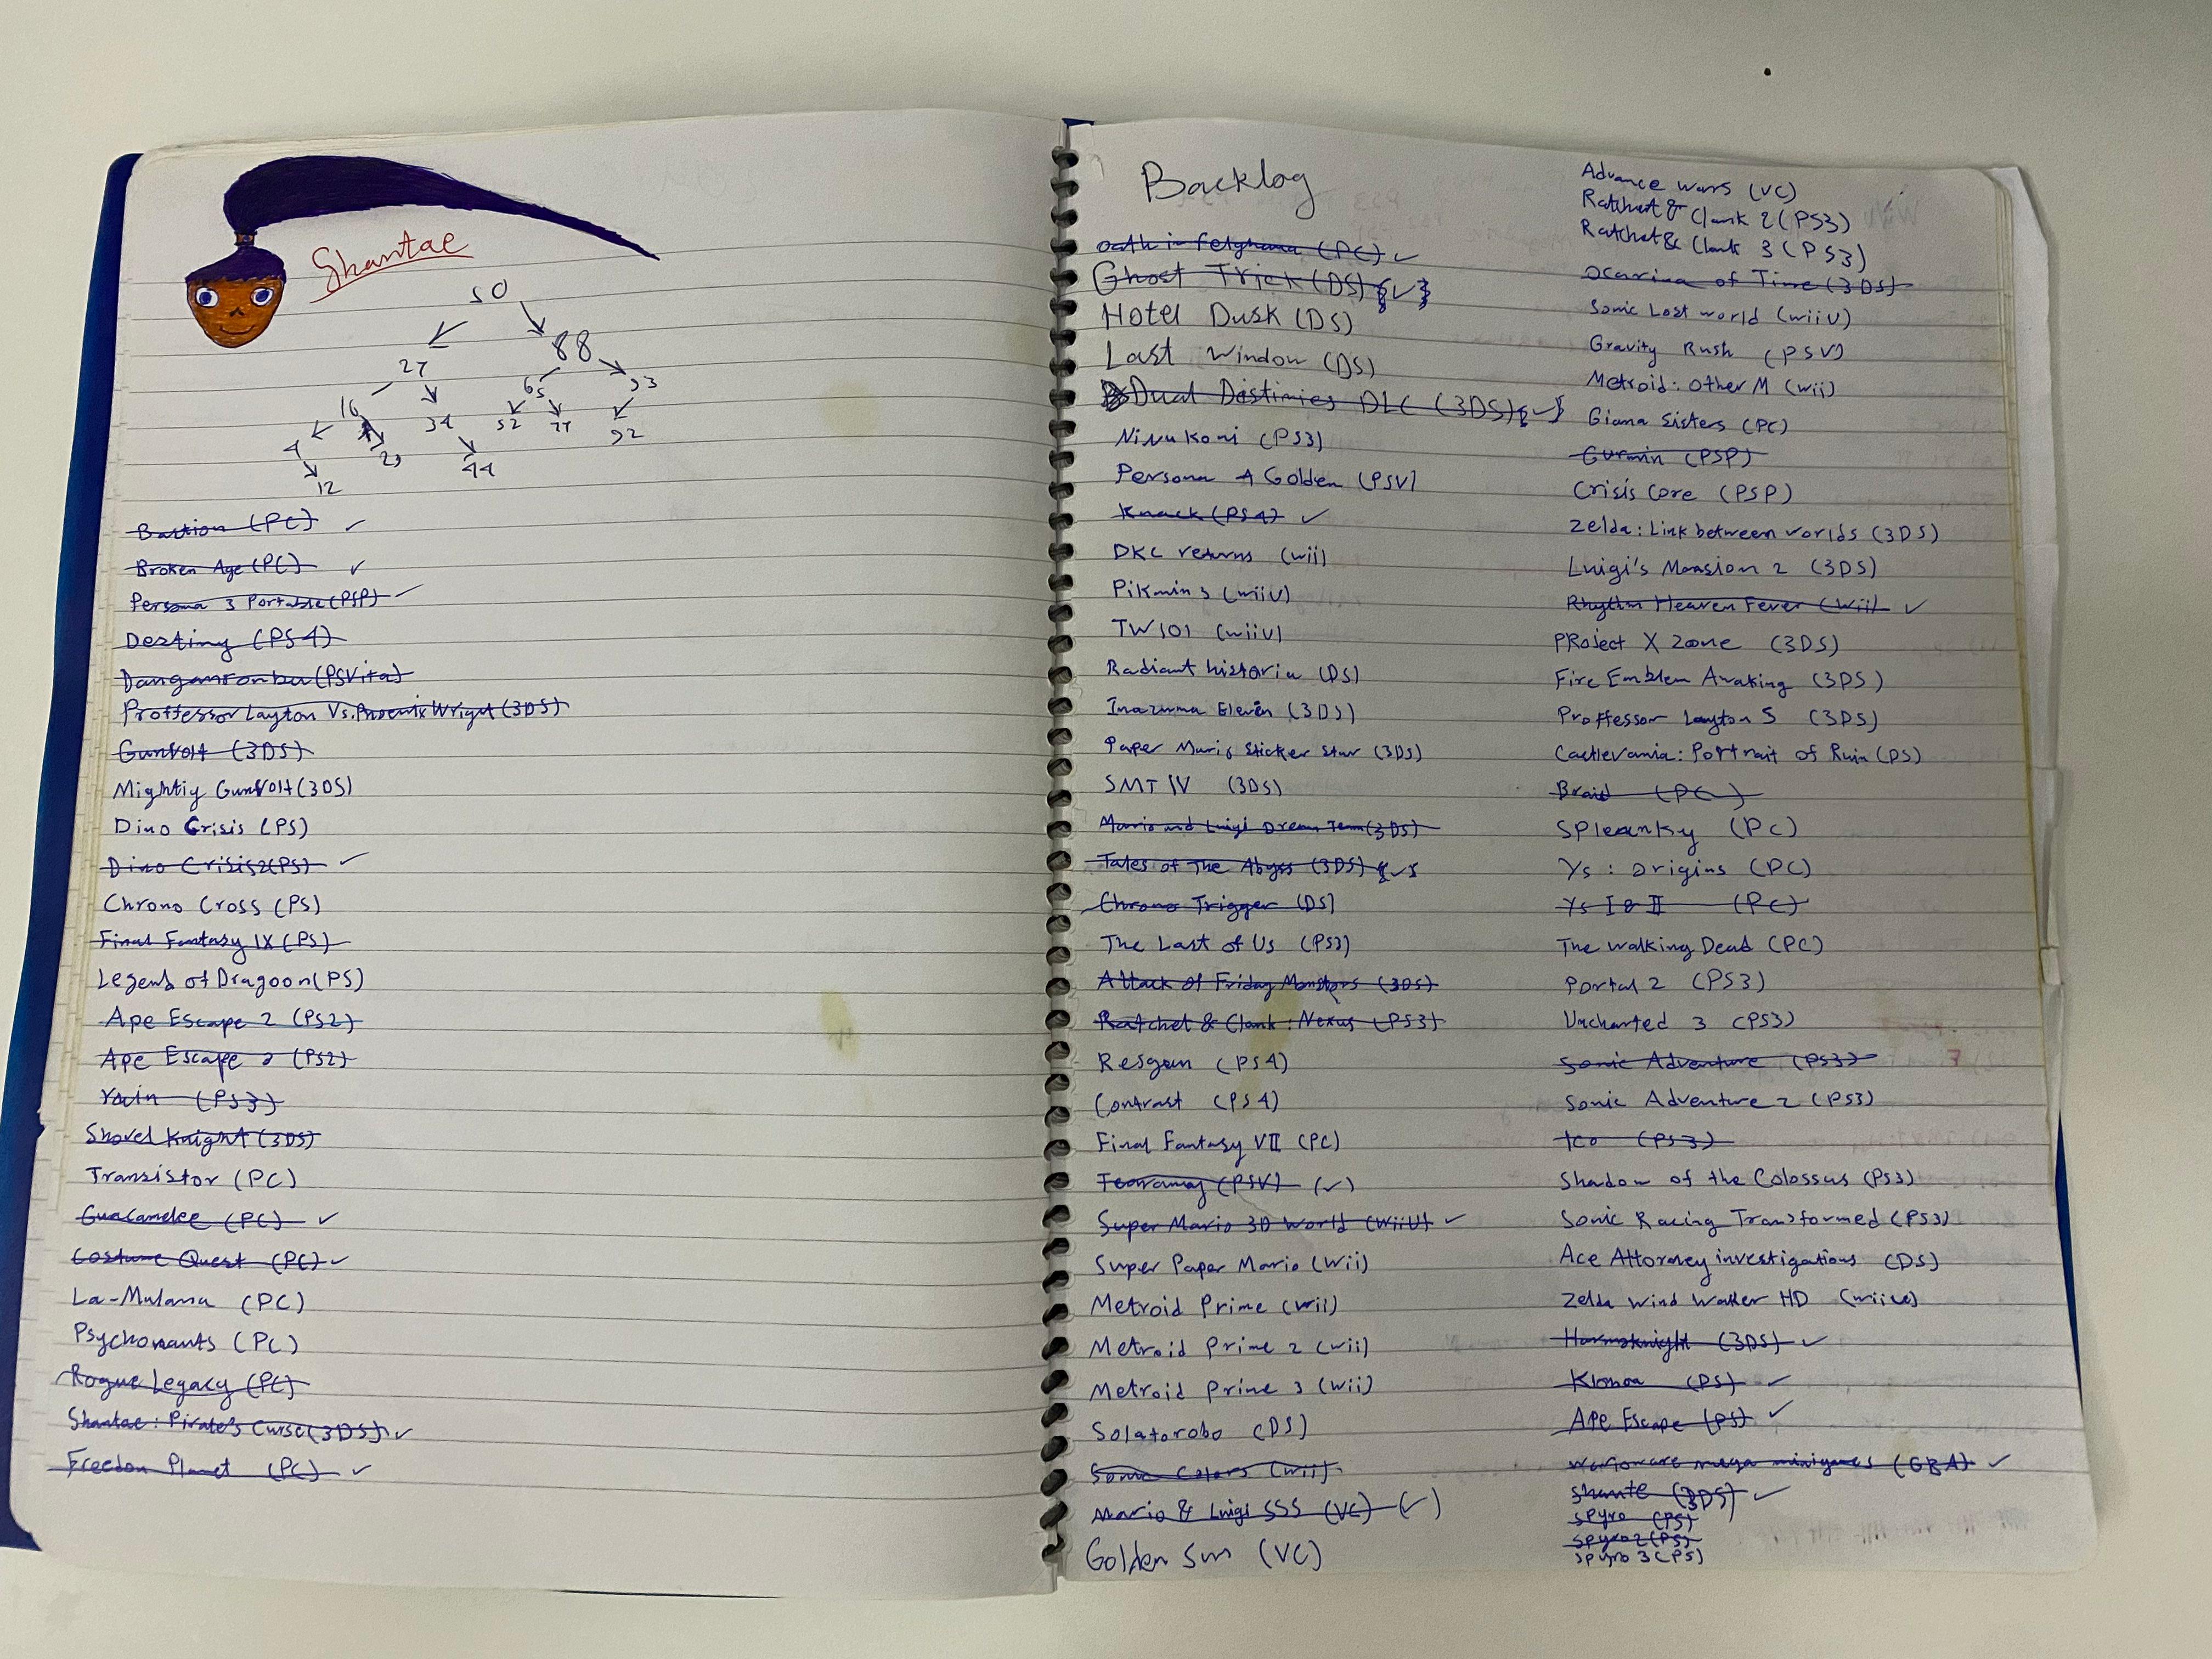 Shantae
50
27 88
16 34 65 93
4 23 44 52 77 92
12
Bastion (PC) ✓
Broken Age (PC) ✓
Persona 3 Portable (PSP) ✓
Destiny (PS4)
Danganronba (PSVita)
Proffessor Layton Vs. Phoenix Wright (3DS)
Gunvolt (3DS)
Mightiy Gunvolt (3DS)
Dino Crisis (PS)
Dino Crisis 2 (PS) ✓
Chrono Cross (PS)
Final Fantasy IX (PS)
Legend of Dragoon (PS)
Ape Escape 2 (PS2)
Ape Escape 3 (PS2)
rain (PS3)
Shovel Knight (3DS)
Transistor (PC)
Guacamelee (PC) ✓
Costume Quest (PC) ✓
La-Mulana (PC)
Psychonauts (PC)
Rogue Legacy (PC)
Shantae: Pirate's Curse (3DS) ✓
Freedom Planet (PC) ✓
Backlog
Oath in Felghana (PC) ✓
Ghost Trick (DS) {✓}
Hotel Dusk (DS)
Last Window (DS)
Dual Destinies DLC (3DS) {✓}
Ni Nu Koni (PS3)
Persona 4 Golden (PSV)
Knack (PS4) ✓
DKC returns (wii)
Pikmin 3 (wiiU)
TW101 (wiiU)
Radiant historia (DS)
Inazuma Eleven (3DS)
Paper Mario Sticker Star (3DS)
SMT IV (3DS)
Mario and Luigi Dream Team (3DS)
Tales of The Abyss (3DS) {✓}
Chrono Trigger (DS)
The Last of Us (PS3)
Attack of Friday Monsters (3DS)
Ratchet & Clank: Nexus (PS3)
Resgun (PS4)
Contrast (PS4)
Final Fantasy VII (PC)
Tearaway (PSV) (✓)
Super Mario 3D World (WiiU) ✓
Super Paper Mario (Wii)
Metroid Prime (wii)
Metroid Prime 2 (wii)
Metroid Prime 3 (wii)
Solatorobo (DS)
Sonic Colors (wii)
Mario & Luigi SSS (VC) (✓)
Golden Sun (VC)
Advance Wars (VC)
Ratchet & Clank 2 (PS3)
Ratchet & Clank 3 (PS3)
Ocarina of Time (3DS)
Sonic Lost world (wiiU)
Gravity Rush (PSV)
Metroid: Other M (wii)
Giana Sisters (PC)
Gurmin (PSP)
Crisis Core (PSP)
Zelda: Link between worlds (3DS)
Luigi's Mansion 2 (3DS)
Rhythm Heaven Fever (Wii) ✓
PRoject X Zone (3DS)
Fire Emblem Awaking (3DS)
Proffessor Layton 5 (3DS)
Castlevania: Portrait of Ruin (DS)
Braid (PC)
Spleanky (PC)
Ys: Origins (PC)
Ys I & II (PC)
The Walking Dead (PC)
Portal 2 (PS3)
Uncharted 3 (PS3)
Sonic Adventure (PS3)
Sonic Adventure 2 (PS3)
Ico (PS3)
Shadow of the Colossus (PS3)
Sonic Racing Transformed (PS3)
Ace Attorney investigations (DS)
Zelda Wind Waker HD (wiiu)
Harmoknight (3DS) ✓
Klonoa (PS) ✓
Ape Escape (PS) ✓
Warioware mega minigames (GBA) ✓
Shante (3DS) ✓
Spyro (PS)
Spyro 2 (PS)
Spyro 3 (PS)